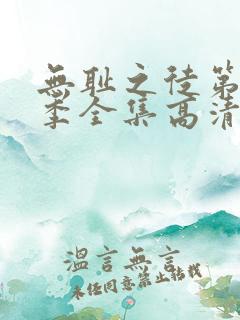 無耻之徒第
季全集高清
溫言無言
未经同意禁止转载